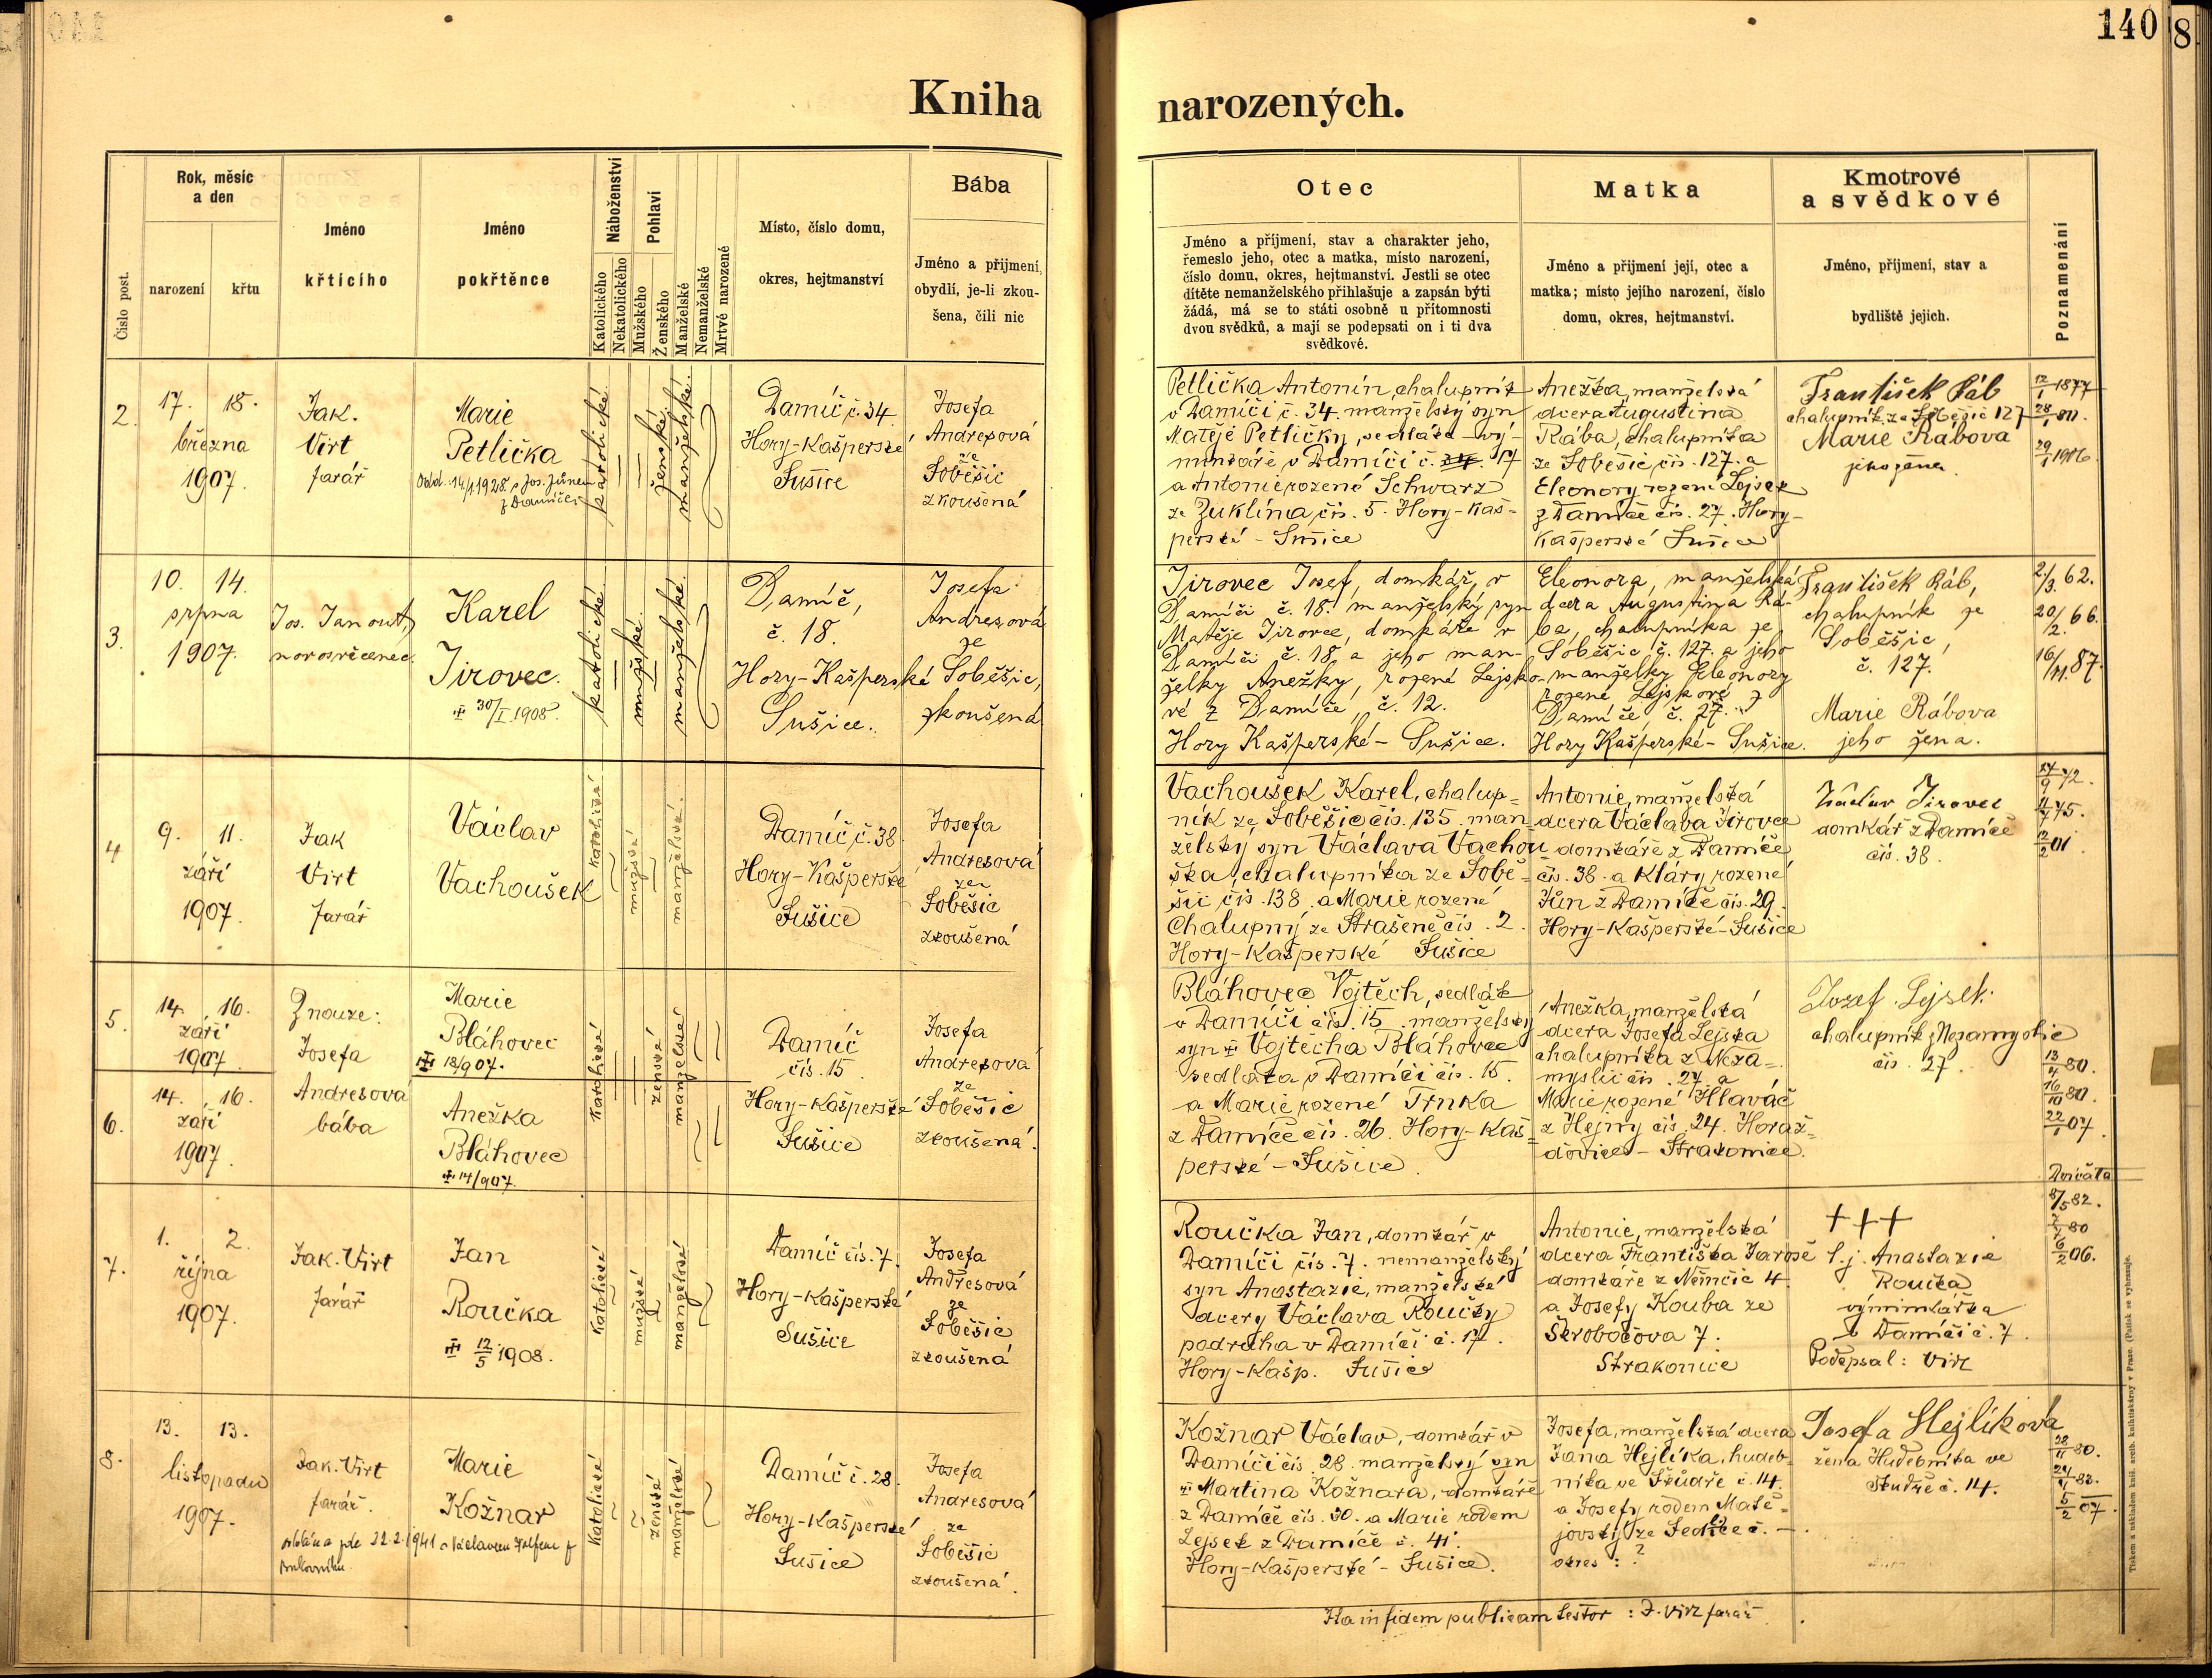 140
8
Kniha narozených.
Číslo post.
Rok, měsíc
a den
narození
křtu
Jméno
křtícího
Jméno
pokřtěnce
Náboženství
Katolického
Nekatolického
Pohlaví
Mužského
Ženského
Manželské
Nemanželské
Mrtvé narozené
Místo, číslo domu,
okres, hejtmanství
Bába
Jméno a přijmení,
obydlí, je-li zkou-
šena, čili nic
Otec
Jméno a příjmení, stav a charakter jeho,
řemeslo jeho, otec a matka, místo narození,
číslo domu, okres, hejtmanství. Jestli se otec
dítěte nemanželského přihlašuje a zapsán býti
žádá, má se to státi osobně u přítomnosti
dvou svědků, a mají se podepsati on i ti dva
svědkové.
Matka
Jméno a přijmení její, otec a
matka; místo jejího narození, číslo
domu, okres, hejtmanství.
Kmotrové
a svědkové
Jméno, příjmení, stav a
bydliště jejich.
Poznamenání
2.
17. 18.
března
1907.
Jak.
Virt
farář
Marie
Petlička
Odd. 14/1 1928 s Jos. Jůnem
z Damíče
katolické
ženské
manželské.
Damíč č. 34
Hory-Kašperské
Sušice
Josefa
Andresová
ze
Soběšic
zkoušená
Petlička Antonín, chalupník
v Damíči č. 34. manželský syn
Matěje Petličky, sedláka-vý-
minkáře v Damíči č. 17
a Antonie rozené Schwarz
ze Žuklína čís. 5. Hory-Kaš-
perské - Sušice
Anežka, manželská
dcera Augustina
Rába, chalupníka
ze Soběšic čís. 127. a
Eleonory rozené Lejsek
z Damíče čís. 27. Hory-
Kašperské Sušice
František Ráb
chalupník ze Soběšic 127
Marie Rábova
jeho žena.
12/1 1877
28/1 80.
29/1 1906.
3.
10. 14.
srpna
1907.
Jos. Janout,
novosvěcenec.
Karel
Jirovec.
30/I 1908.
katolické
mužské.
manželské.
Damíč,
č. 18.
Hory-Kašperské
Sušice.
Josefa
Andresová
ze
Soběšic,
zkoušená
Jirovec Josef, domkář, v
Damíči č. 18. manželský syn
Matěje Jirovce, domkáře v
Damíči č. 18 a jeho man-
želky Anežky, rozené Lejsko-
vé z Damíče, č. 12.
Hory Kašperské - Sušice.
Eleonora, manželská
dcera Augustina Rá-
ba, chalupníka ze
Soběšic č. 127. a jeho
manželky Eleonory
rozené Lejskové z
Damíče, č. 27.
Hory Kašperské - Sušice.
František Ráb,
chalupník ze
Soběšic,
č. 127.
Marie Rábova
jeho žena.
2/3. 62.
20/2. 66.
16/11. 87.
4
9. 11.
září
1907.
Jak
Virt
farář
Václav
Vachoušek
katolické
mužské
manželské.
Damíč č. 38
Hory-Kašperské
Sušice
Josefa
Andresová
ze
Soběšic
zkoušená
Vachoušek Karel, chalup=
ník ze Soběšic čís. 135. man-
želský syn Václava Vachou=
ška, chalupníka ze Sobě=
šic čís. 138. a Marie rozené
Chalupný ze Strašeně čís. 2.
Hory-Kašperské Sušice
Antonie, manželská
dcera Václava Jirovce
domkáře z Damíče
čís. 38. a Kláry rozené
Jůn z Damíče čís. 29.
Hory-Kašperské-Sušice
Václav Jirovec
domkář z Damíče
čís. 38.
72.
75.
01.
5.
14. 16.
září
1907
Z nouze:
Josefa
Andresová
bába
Marie
Bláhovec
18/9 07.
katolické
ženské
manželské
Damíč
čís. 15
Hory-Kašperské
Sušice
Josefa
Andresová
ze
Soběšic
zkoušená.
Bláhovec Vojtěch, sedlák
v Damíči čís. 15. manželský
syn Vojtěcha Bláhovce
sedláka v Damíči čís. 15.
a Marie rozené Trnka
z Damíče čís. 26. Hory-Kaš=
perské - Sušice.
Anežka, manželská
dcera Josefa Lejska
chalupníka z Neza-
myslic čís. 27. a
Marie rozené Hlaváč
z Hejny čís. 24. Horaž=
ďovice - Strakonice.
Jozef Lejsek
chalupník z Nezamyslic
čís. 27.
80.
16/10 80.
22/1 07.
Dvojčata
6.
14. 16.
září
1907.
Anežka
Bláhovec
14/9 07.
7.
1. 2.
října
1907.
Jak. Virt
farář
Jan
Roučka
12/5 1908.
katolické
mužské
manželské
Damíč čís. 7.
Hory-Kašperské
Sušice
Josefa
Andresová
ze
Soběšic
zkoušená
Roučka Jan, domkář v
Damíči čís. 7. nemanželský
syn Anastazie, manželské
dcery Václava Roučky
podruha v Damíči č. 17.
Hory-Kašp. Sušice
Antonie, manželská
dcera Františka Jaroše
domkáře z Němčic 4.
a Josefy Kouba ze
Škrobočova 7.
Strakonice
+++
t. j. Anastazie
Roučka
výminkářka
v Damíči č. 7.
Podepsal: Virt
8/5 82.
80
6/2 06.
8.
13. 13.
listopadu
1907.
Jak. Virt
farář.
Marie
Kožnar
katolické
ženské
manželské
Damíč č. 28.
Hory-Kašperské
Sušice
Josefa
Andresová
ze
Soběšic
zkoušená.
Kožnar Václav, domkář v
Damíči čís. 28. manželský syn
Martina Kožnara, domkáře
z Damíče čís. 30. a Marie rodem
Lejsek z Damíče č. 41.
Hory-Kašperské - Sušice.
Josefa, manželská dcera
Jana Hejlíka, hudeb-
níka ve Škůdře č. 14.
a Josefy rodem Matě=
jovský ze Sedlice č. —.
okres: ?
Josefa Hejlíkova
žena Hudebníka ve
č. 14.
28/11 80.
83.
5/2 07.
Ita in fidem publicam testor: J. Virt farář